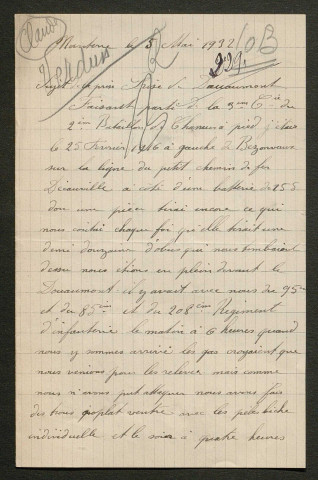 Claude
Verdun
Nanterre le 5 Mai 1932
OB
239
Sujet de la prise de Douaumont
Faisant parti de la 3me Cie du
2ème Bataillon de Chasseurs à pied j'étais
le 25 Fevrier 1916 à gauche de Bezonvaux
sur la ligne du petit chemin de fer
Décauville a coté d'une batterie de 155
don une pièce tirai encore ce qui
nous coutai chaque foi qu'elle tirait une
demi douzaine d'obus qui nous tombaient
dessu nous étions en plein devant le
Douaumont et y avait avec nous du 95ème
et du 85ème et du 208ème Regiment
d'infanterie le matin à 6 heures quand
nous y sommes arrivé les gas croyaient que
nous venions pour les relever mais comme
nous n'avons put attaquer nous avons fais
des trous a plat ventre avec les pelle bêche
individuelle et le soir a quatre heures